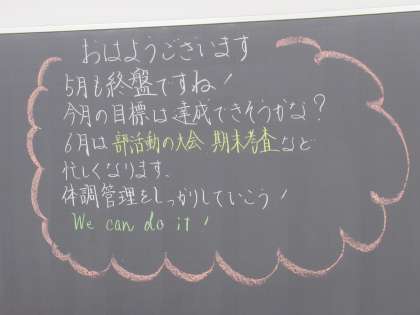 おはようございます
5月も終盤ですね!
今月の目標は達成できそうかな?
6月は部活動の大会 期末考査など
忙しくなります.
体調管理をしっかりしていこう!
We can do it!